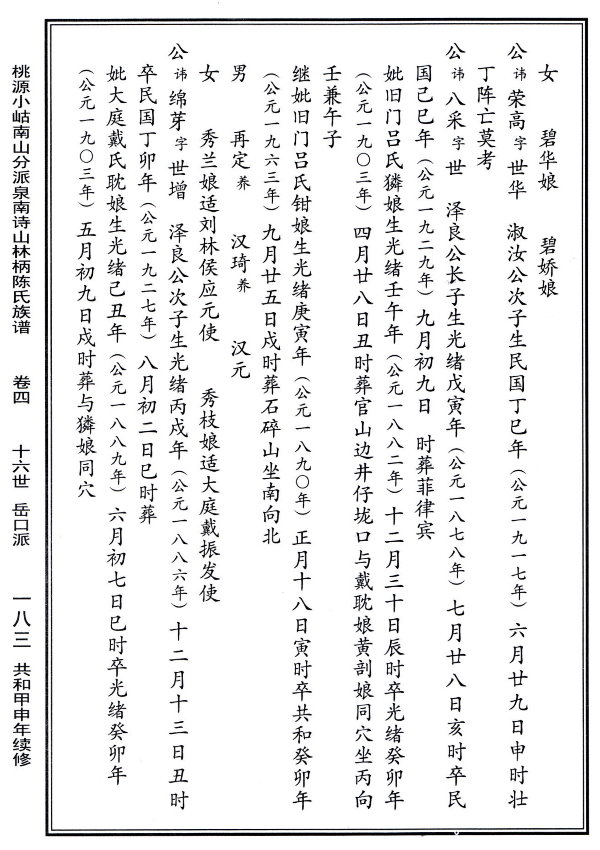 女　碧华娘　碧娇娘
公讳荣高字世华　淑汝公次子生民国丁巳年（公元一九一七年）六月廿九日申时壮
丁阵亡莫考
公讳八采字世　泽良公长子生光绪戊寅年（公元一八七八年）七月廿八日亥时卒民
国己巳年（公元一九二九年）九月初九日　时葬菲律宾
妣旧门吕氏獜娘生光绪壬午年（公元一八八二年）十二月三十日辰时卒光绪癸卯年
（公元一九〇三年）四月廿八日丑时葬官山边井仔垅口与戴耽娘黄剖娘同穴坐丙向
壬兼午子
继妣旧门吕氏钳娘生光绪庚寅年（公元一八九〇年）正月十八日寅时卒共和癸卯年
（公元一九六三年）九月廿五日戌时葬石碎山坐南向北
男　再定养　汉琦养　汉元
女　秀兰娘适刘林侯应元使　秀枝娘适大庭戴振发使
公讳绵芽字世增　泽良公次子生光绪丙戌年（公元一八八六年）十二月十三日丑时
卒民国丁卯年（公元一九二七年）八月初二日巳时葬
妣大庭戴氏耽娘生光绪己丑年（公元一八八九年）六月初七日巳时卒光绪癸卯年
（公元一九〇三年）五月初九日戍时葬与獜娘同穴
桃源小岵南山分派泉南诗山林柄陈氏族谱　卷四　十六世　岳口派　一八三　共和甲申年续修